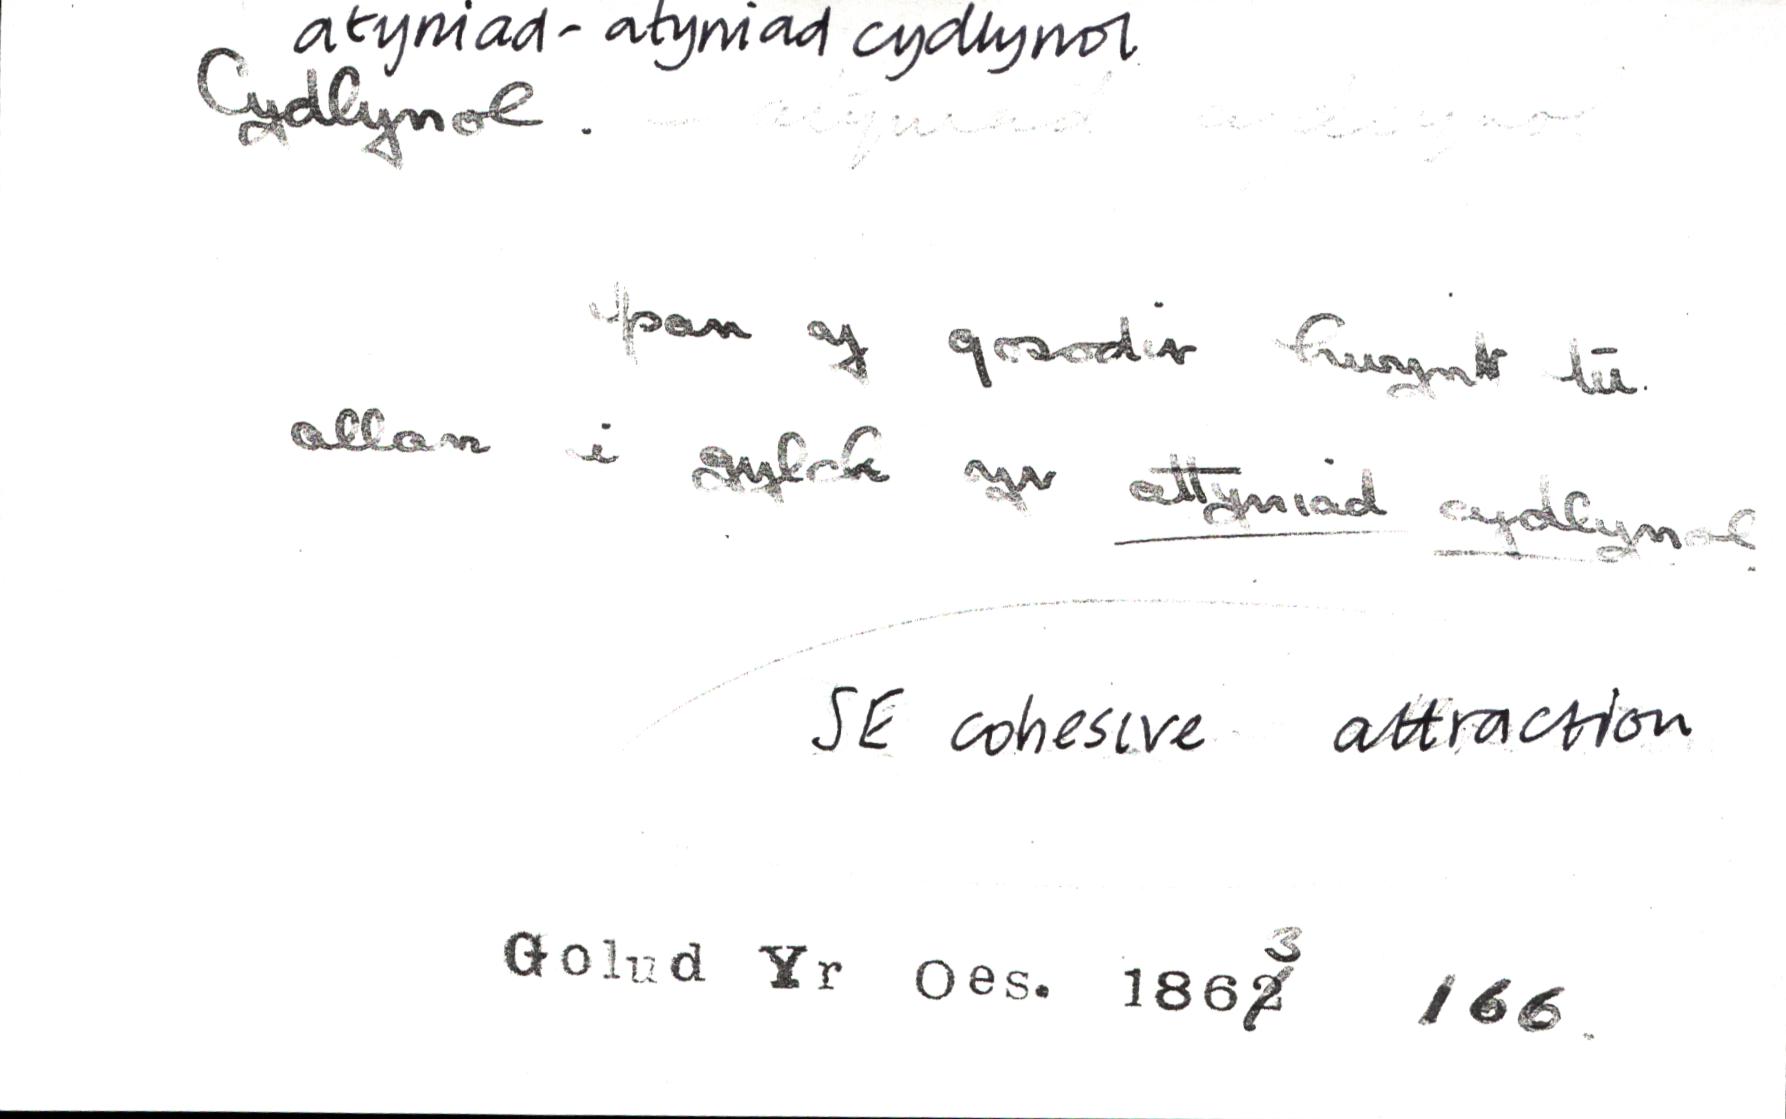 atyniad - atyniad cydlynol
Cydlynol. - atyniad cydlynol
pan y gosodir hwynt tu
allan i gylch yr attyniad cydlynol
SE cohesive attraction
Golud Yr Oes. 1863 166.